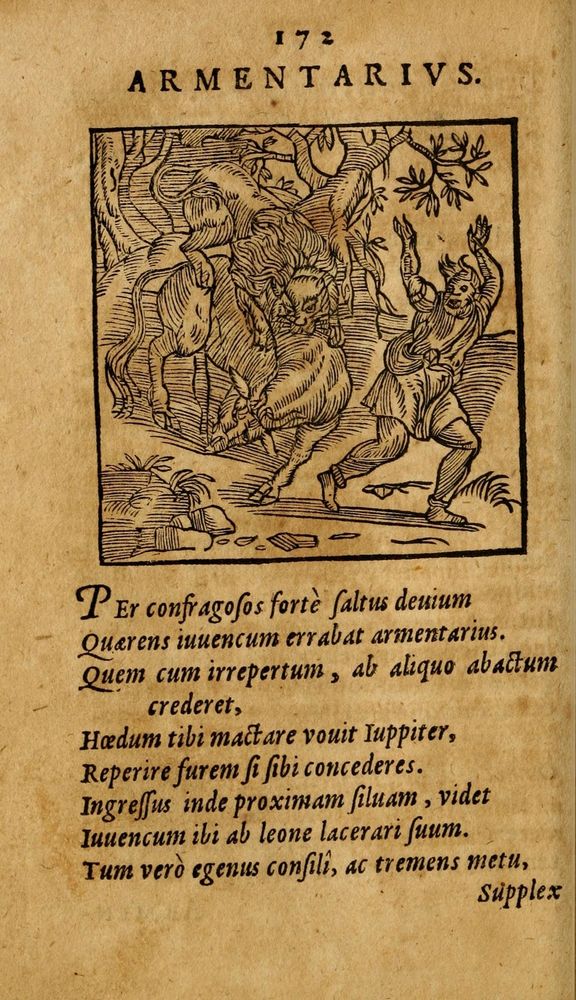 172
ARMENTARIVS.
PEr confragoſos fortè ſaltus deuium
Quærens iuuencum errabat armentarius.
Quem cum irrepertum, ab aliquo abactum
crederet,
Hœdum tibi mactare vouit Iuppiter,
Reperire furem ſi ſibi concederes.
Ingreſſus inde proximam ſiluam, videt
Iuuencum ibi ab leone lacerari ſuum.
Tum verò egenus conſilî, ac tremens metu,
Supplex